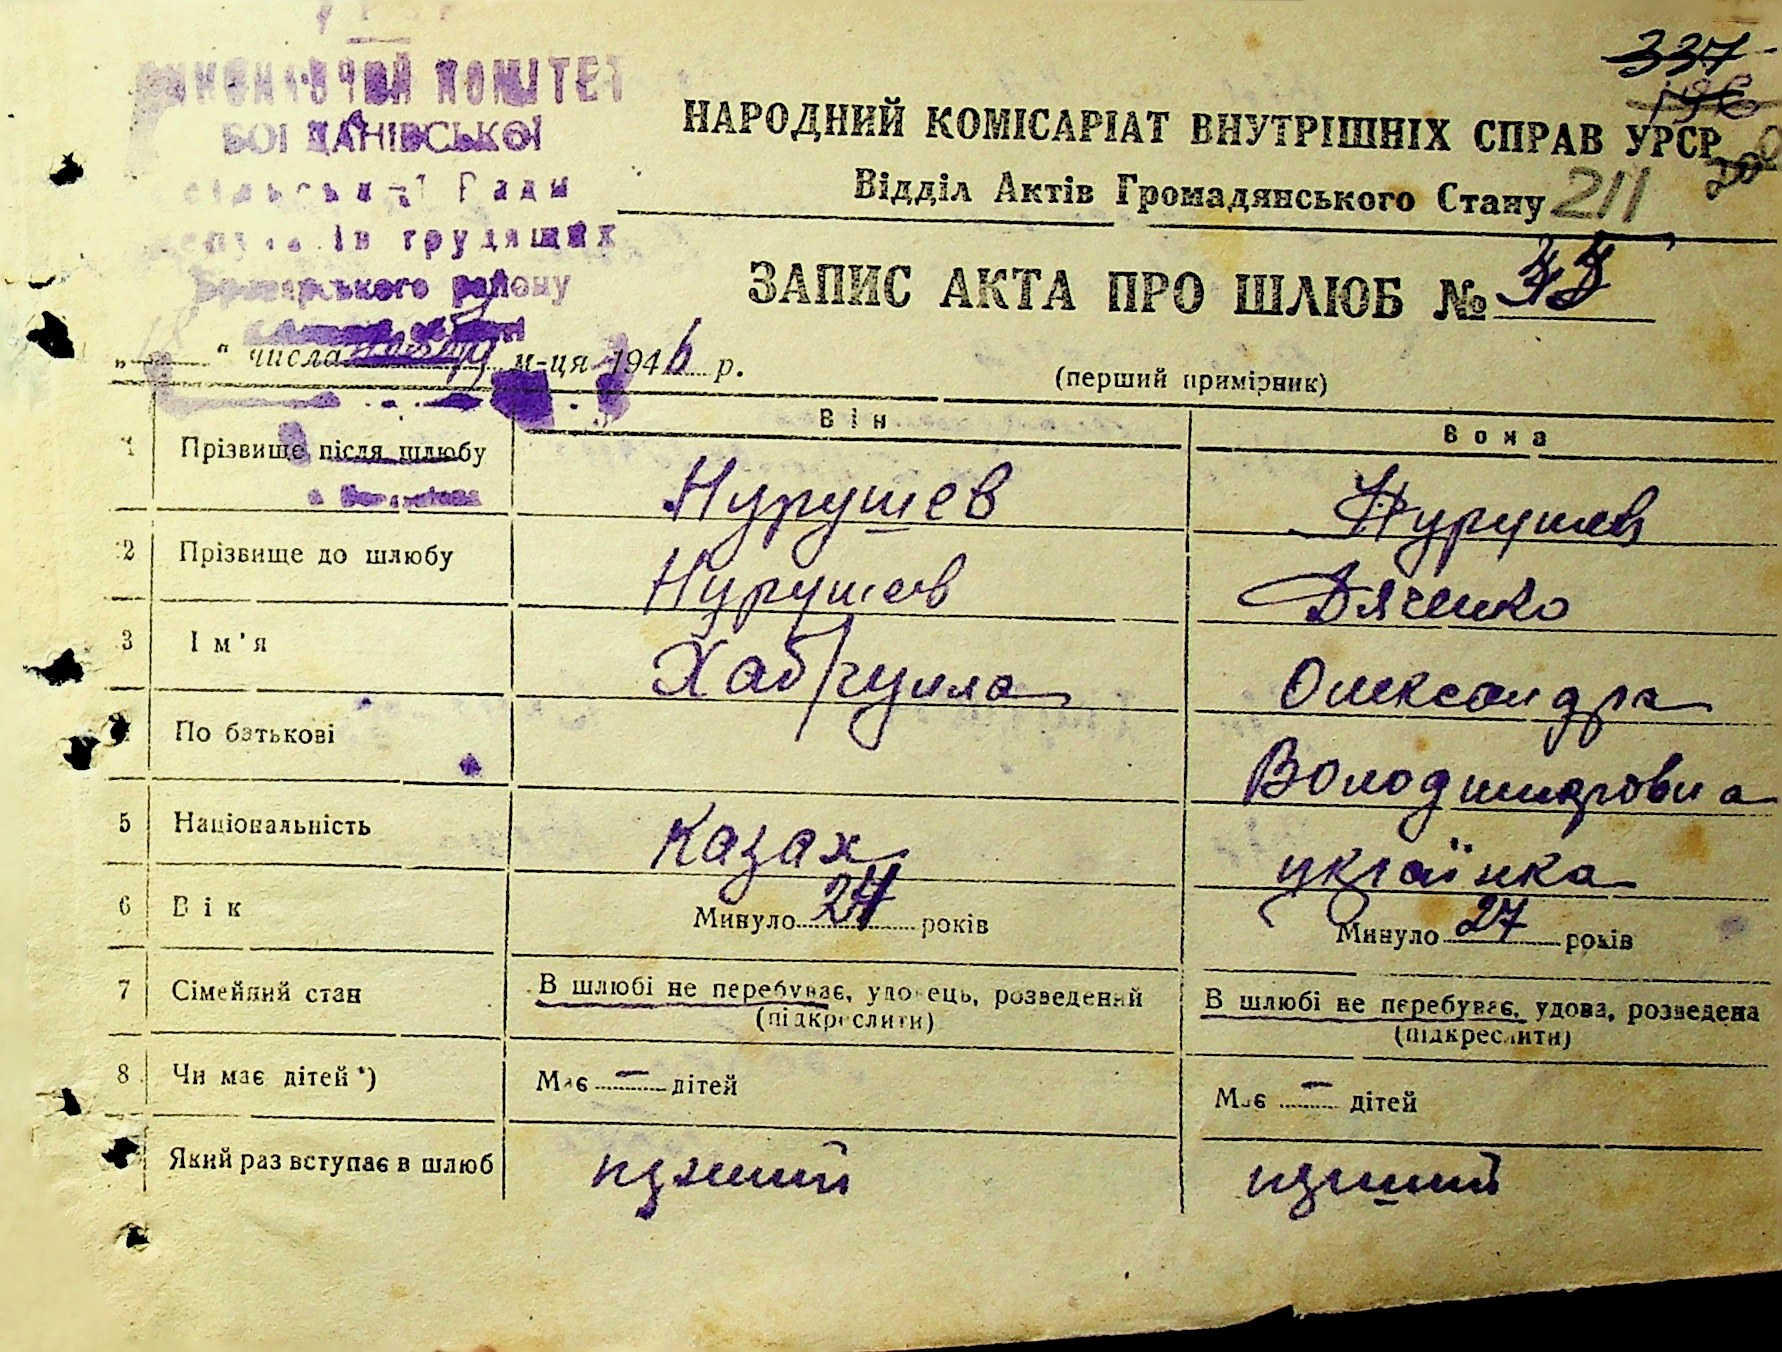 ВИКОНАВЧИЙ КОМІТЕТ
БОГДАНІВСЬКОЇ
сільської Ради
депутатів трудящих
Броварського району
337
НАРОДНИЙ КОМІСАРІАТ ВНУТРІШНІХ СПРАВ УРСР
Відділ Актів Громадянського Стану 211
ЗАПИС АКТА ПРО ШЛЮБ №
„18“ числа м-ця 1946 р.
(перший примірник)
Він Вона
1 Прізвище після шлюбу Нурушев Нурушев
2 Прізвище до шлюбу Нурушев Дяченко
3 Ім'я Хабігуила Олександра
По батькові Володимировна
5 Національність Казах українка
6 Вік Минуло 24 років Минуло 27 років
7 Сімейний стан В шлюбі не перебуває, удовець, розведений В шлюбі не перебуває, удова, розведена
(підкреслити) (підкреслити)
8 Чи має дітей*) Має — дітей Має — дітей
Який раз вступає в шлюб перший перший